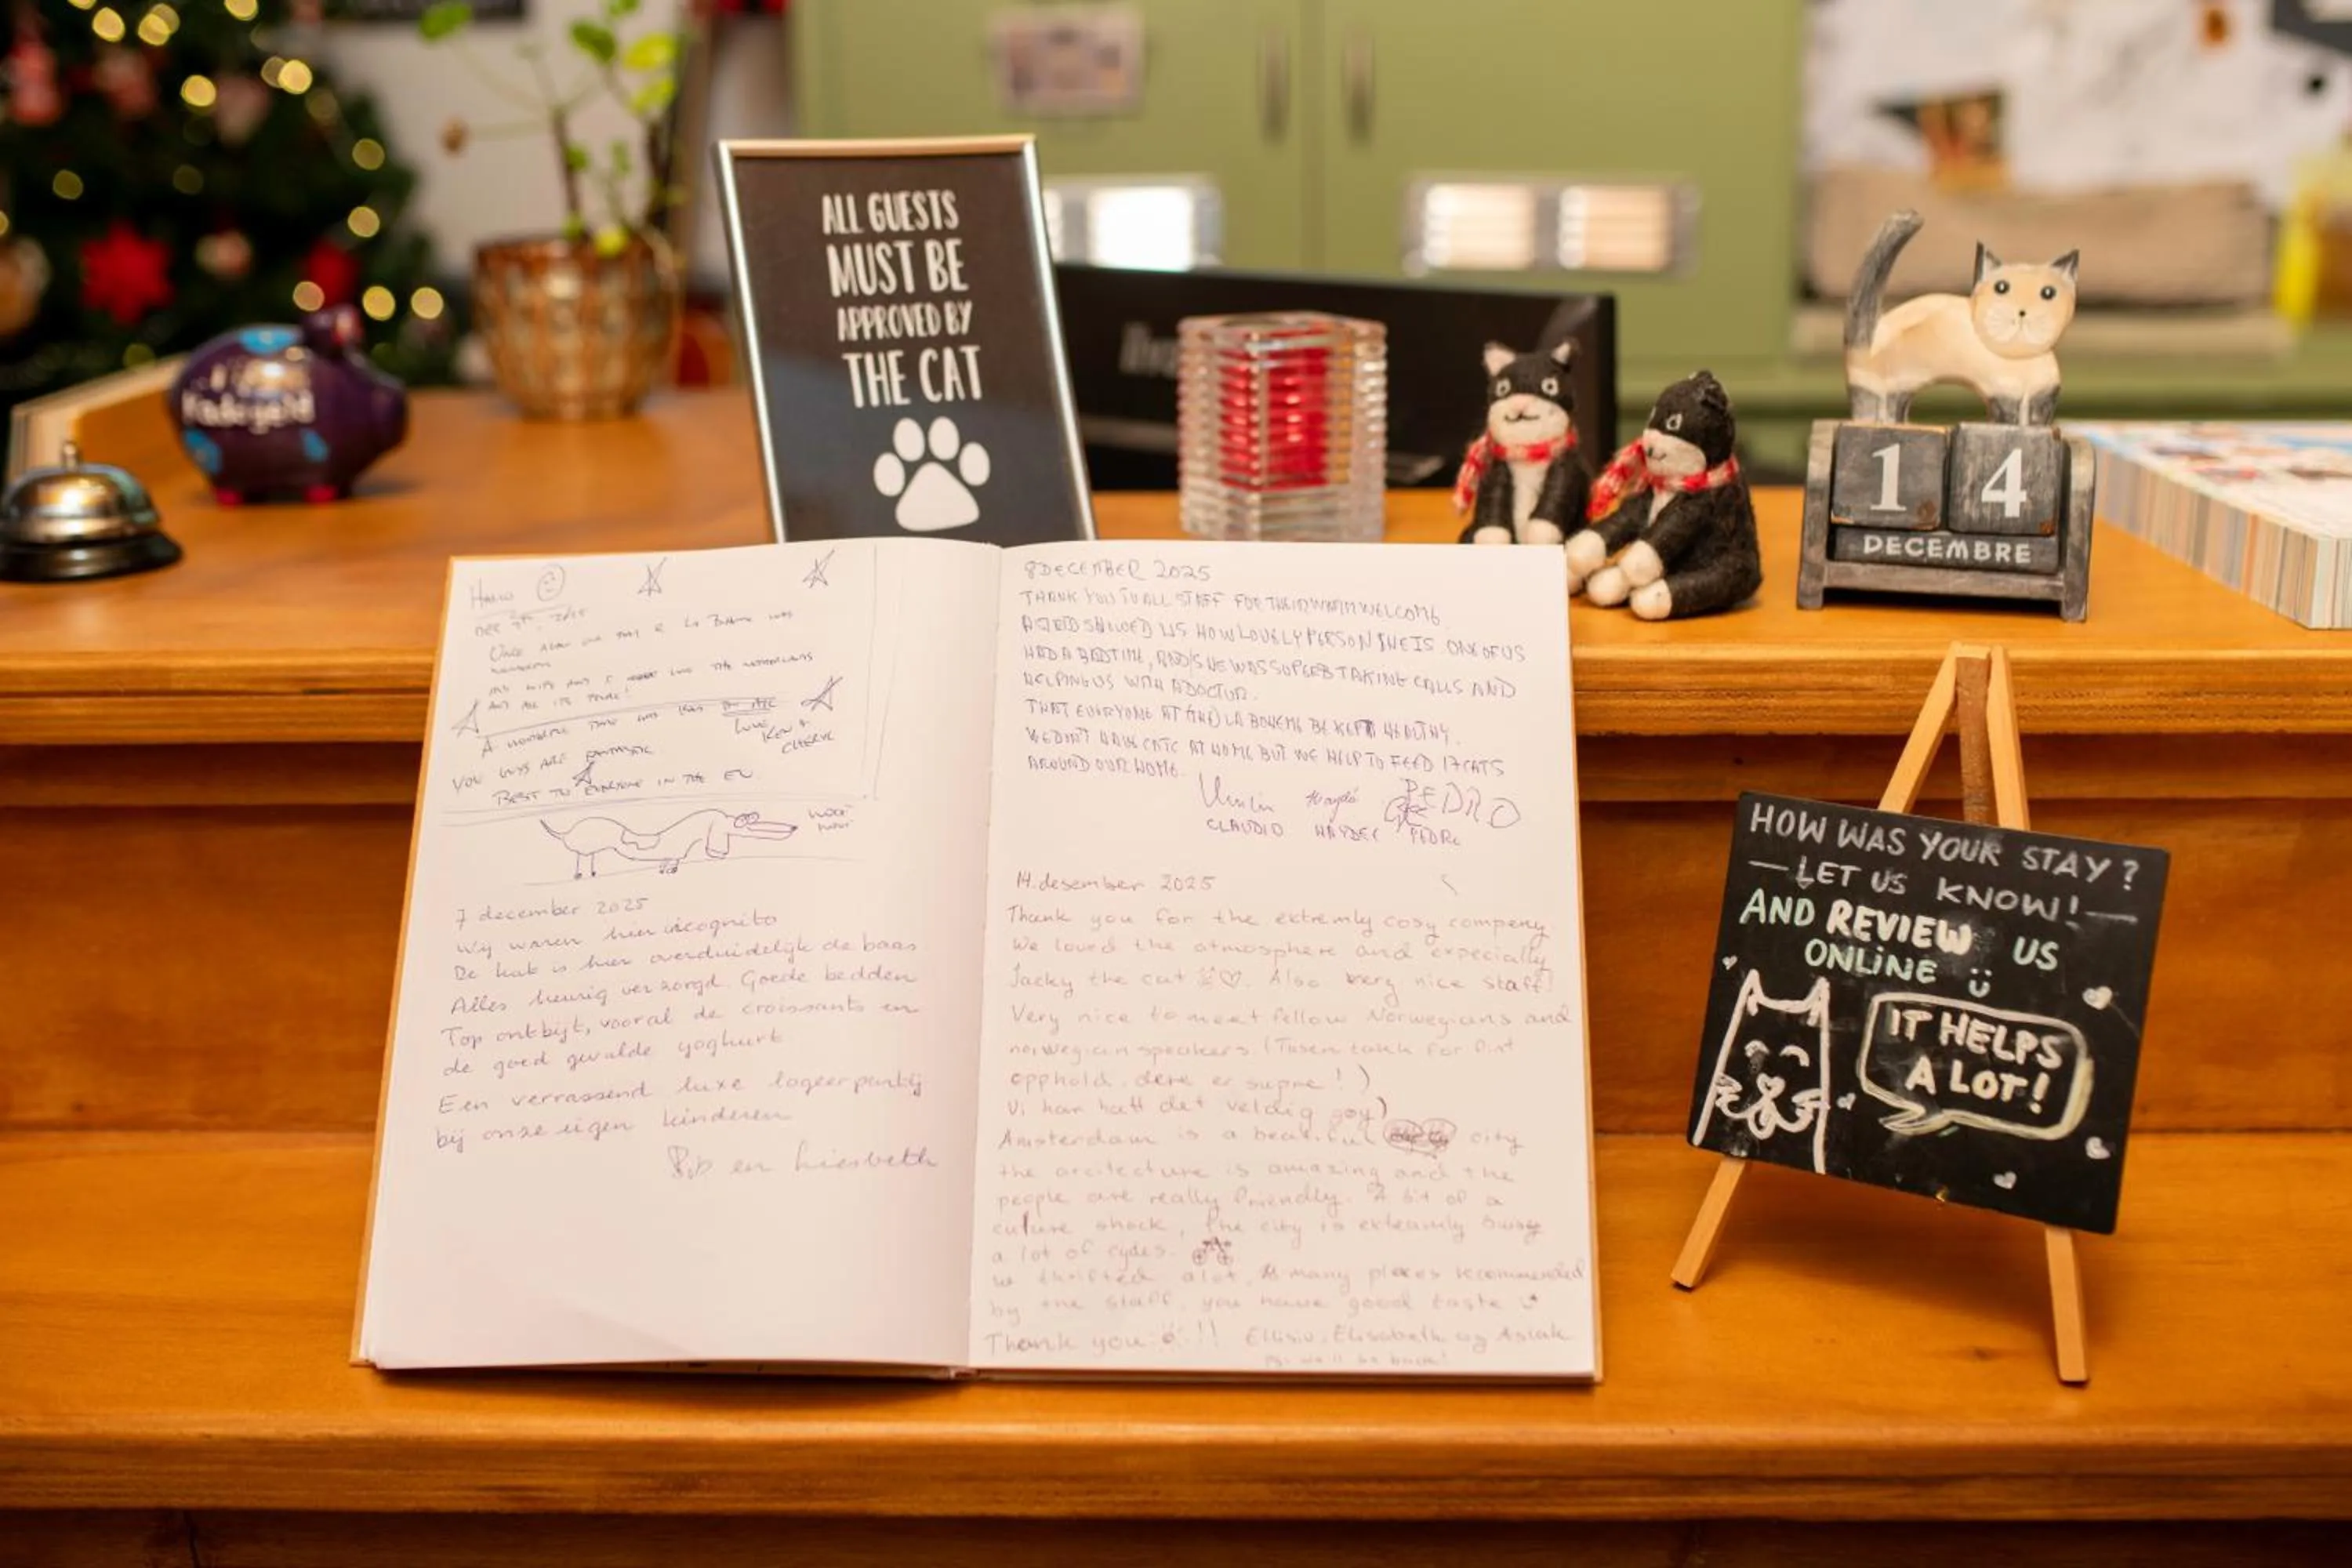 ALL GUESTS
MUST BE
APPROVED BY
THE CAT
14
DECEMBRE
DEC 7th, 2025
Once again our stay @ La Boheme was
wonderful
my wife and I love the Netherlands
and all its
A wonderful time was had
Love
Ken +
You guys are fantastic
Best to everyone in the EU
woof
woof
7 december 2025
Wij waren hier incognito
De kat is hier overduidelijk de baas
Alles keurig verzorgd. Goede bedden
Top ontbijt, vooral de croissants en
de goed gevulde yoghurt
Een verrassend luxe logeerpartij
bij onze eigen kinderen
en Liesbeth
8 DECEMBER 2025
THANK YOU TO ALL STAFF FOR THEIR WARM WELCOME
SHOWED US HOW LOVELY PERSON SHE IS ONE OF US
HAD A BAD TIME, AND SHE WAS SUPERB TAKING CALLS AND
HELPING US WITH A DOCTOR.
THAT EVERYONE AT (THE) LA BOHEME BE KEPT HEALTHY.
WE DON'T HAVE CATS AT HOME BUT WE HELP TO FEED 17 CATS
AROUND OUR HOME.
PEDRO
CLAUDIO HAYDEE PEDRO
14. desember 2025
Thank you for the extremly cosy compeny
We loved the atmosphere and expecially
Jacky the cat ♡. Also very nice staff!
Very nice to meet fellow Norwegians and
norwegian speakers. (Tusen takk for fint
opphold, dere er supre!)
Vi har hatt det veldig gøy)
Amsterdam is a beautiful city
the arcitecture is amazing and the
people are really friendly. A bit of a
culture shock, the city is extreamly busy
a lot of cycles.
We thrifted alot, many places recommended
by the staff, you have good taste
Thank you !!! Elisabeth og Aslak
Ps. we'll be back!
HOW WAS YOUR STAY?
— LET US KNOW! —
AND REVIEW US
ONLINE
IT HELPS
A LOT!